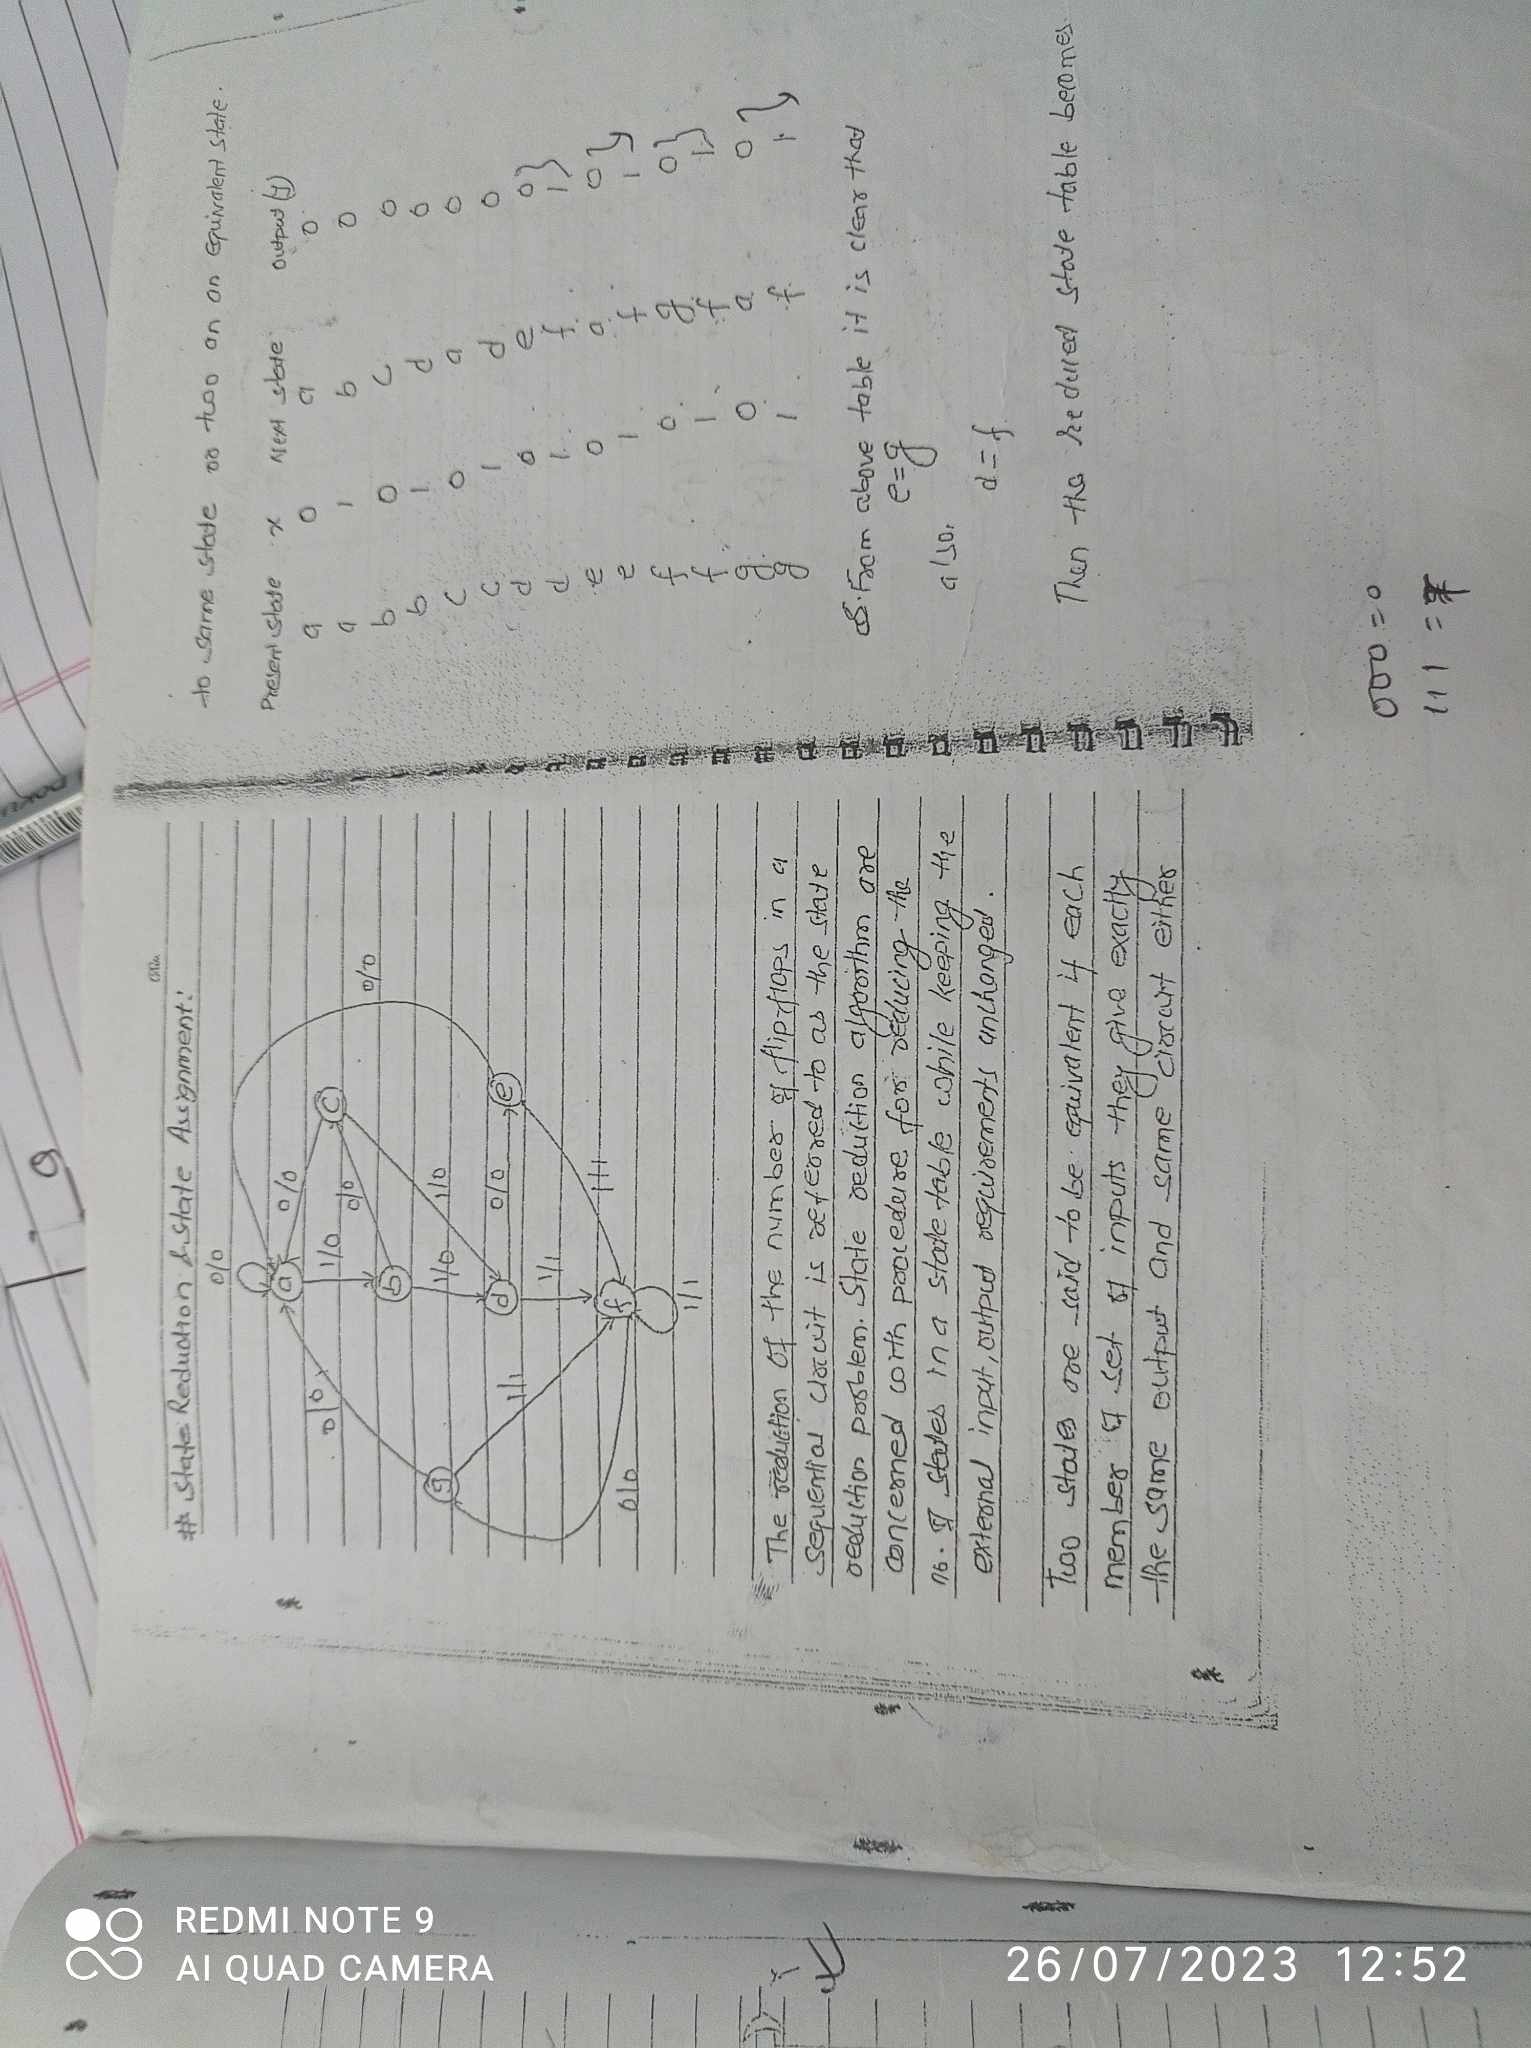 # State Reduction & State Assignment:
0/0
a
0/0
1/0
0/0
0/0
c
0/0
b
1/0
1/0
g
1/1
d
0/0
e
1/1
1/1
f
0/0
1/1
The reduction of the number of flip-flops in a
sequential circuit is referred to as the state
reduction problem. State reduction algorithm are
concerned with procedure for reducing the
no. of states in a state table while keeping the
external input, output requirements unchanged.
Two states are said to be equivalent if each
member of set of inputs they give exactly
the same output and same circuit either
to same state or two an an equivalent state.
Present state x Next state output (y)
a 0 a 0
a 1 b 0
b 0 c 0
b 1 d 0
c 0 a 0
c 1 d 0
d 0 e 0
d 1 f 1
e 0 a 0
e 1 f 1
f 0 g 0
f 1 f 1
g 0 a 0
g 1 f 1
From above table it is clear that
e = g
also,
d = f
Then the reduced state table becomes
000 = 0
111 = 7
g
REDMI NOTE 9
AI QUAD CAMERA
26/07/2023 12:52